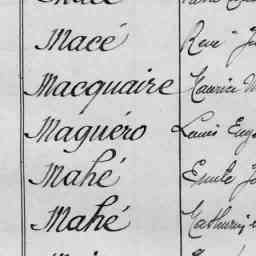 Macé René
Macquaire Maurice
Maguéro Louis Eug
Mahé Emile
Mahé Mathurin